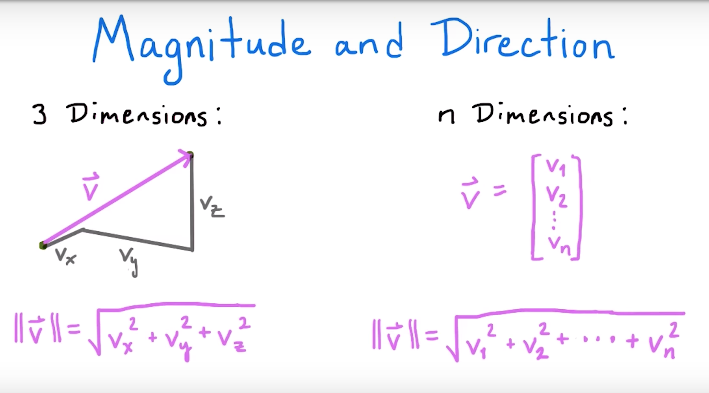 Magnitude and Direction
3 Dimensions:
v⃗
v_z
v_x
v_y
‖v⃗‖ = √(v_x² + v_y² + v_z²)
n Dimensions:
v⃗ = [v₁ v₂ ⋮ vₙ]
‖v⃗‖ = √(v₁² + v₂² + ··· + vₙ²)